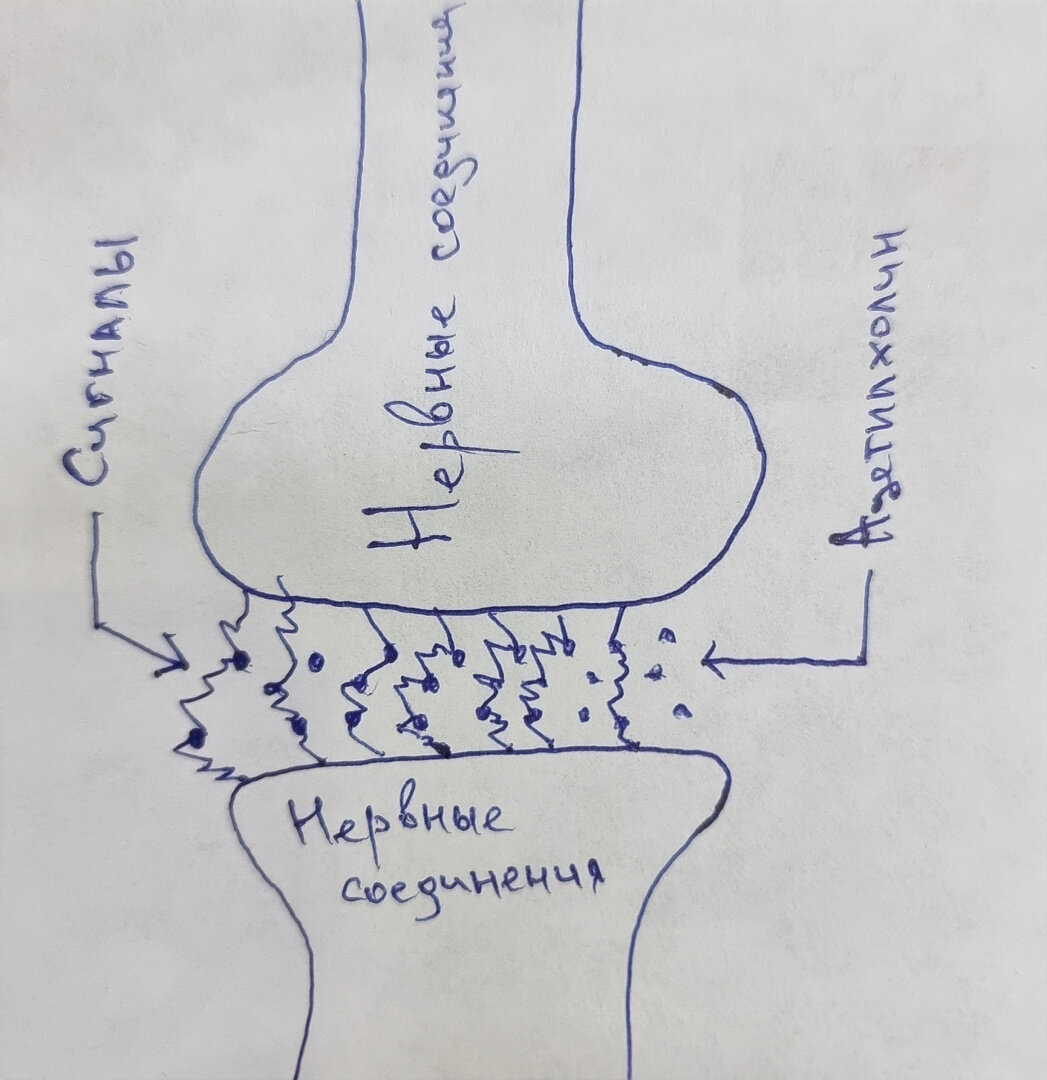 Нервные соединия
Сигналы
Ацетилхолин
Нервные
соединения